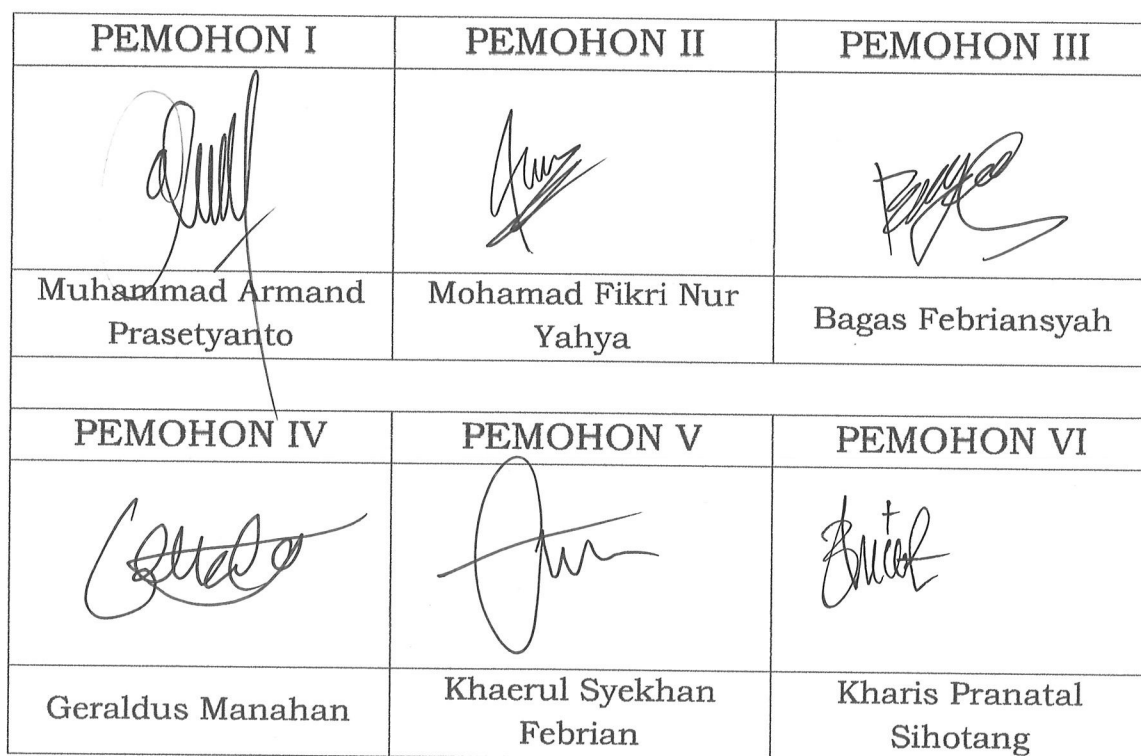 PEMOHON I PEMOHON II PEMOHON III
Muhammad Armand Prasetyanto
Mohamad Fikri Nur Yahya
Bagas Febriansyah
PEMOHON IV PEMOHON V PEMOHON VI
Geraldus Manahan
Khaerul Syekhan Febrian
Kharis Pranatal Sihotang